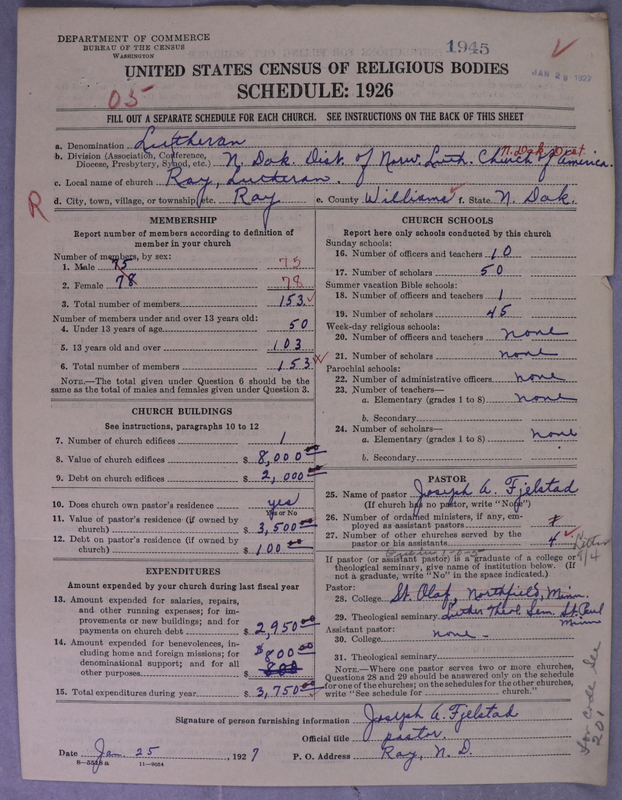 DEPARTMENT OF COMMERCE
BUREAU OF THE CENSUS
WASHINGTON
1945
JAN 28 1927
UNITED STATES CENSUS OF RELIGIOUS BODIES
SCHEDULE: 1926
05
FILL OUT A SEPARATE SCHEDULE FOR EACH CHURCH. SEE INSTRUCTIONS ON THE BACK OF THIS SHEET
a. Denomination Lutheran
N. Dak. Dist.
b. Division (Association, Conference, Diocese, Presbytery, Synod, etc.) N. Dak. Dist. of Norw. Luth. Church of America.
c. Local name of church Ray, Lutheran.
R
d. City, town, village, or township, etc. Ray e. County Williams f. State N. Dak.
MEMBERSHIP
Report number of members according to definition of
member in your church
Number of members, by sex:
1. Male 75 75
2. Female 78 78
3. Total number of members 153
Number of members under and over 13 years old:
4. Under 13 years of age 50
5. 13 years old and over 103
6. Total number of members 153
NOTE.—The total given under Question 6 should be
same as the total of males and females given under Question 3.
CHURCH BUILDINGS
See instructions, paragraphs 10 to 12
7. Number of church edifices 1
8. Value of church edifices $ 8,000 00
9. Debt on church edifices $ 2,000 00
10. Does church own pastor's residence yes
Yes or No
11. Value of pastor's residence (if owned by
church) $ 3,500 00
12. Debt on pastor's residence (if owned by
church) $ 100 00
EXPENDITURES
Amount expended by your church during last fiscal year
13. Amount expended for salaries, repairs,
and other running expenses; for im-
provements or new buildings; and for
payments on church debt $ 2,950 00
14. Amount expended for benevolences, in-
cluding home and foreign missions; for
denominational support; and for all
other purposes $ 800 00
800
15. Total expenditures during year $ 3,750 00
CHURCH SCHOOLS
Report here only schools conducted by this church
Sunday schools:
16. Number of officers and teachers 10
17. Number of scholars 50
Summer vacation Bible schools:
18. Number of officers and teachers 1
19. Number of scholars 45
Week-day religious schools:
20. Number of officers and teachers none
21. Number of scholars none
Parochial schools:
22. Number of administrative officers none
23. Number of teachers—
a. Elementary (grades 1 to 8) none
b. Secondary
24. Number of scholars—
a. Elementary (grades 1 to 8) none
b. Secondary
PASTOR
25. Name of pastor Joseph A. Fjelstad
(If church has no pastor, write "None")
26. Number of ordained ministers, if any, em-
ployed as assistant pastors
27. Number of other churches served by the
pastor or his assistants 4
If pastor (or assistant pastor) is a graduate of a college or
theological seminary, give name of institution below. (If
not a graduate, write "No" in the space indicated.)
Pastor:
28. College St. Olaf, Northfield, Minn.
29. Theological seminary Luther Theol. Sem. St. Paul
Minn
Assistant pastor:
30. College none-
31. Theological seminary
NOTE.—Where one pastor serves two or more churches,
Questions 28 and 29 should be answered only on the schedule
for one of the churches; on the schedules for the other churches,
write "See schedule for church."
Signature of person furnishing information Joseph A. Fjelstad
Official title pastor
Date Ja. 25, 1927 P. O. Address Ray, N. D.
8—5518a 11—9054